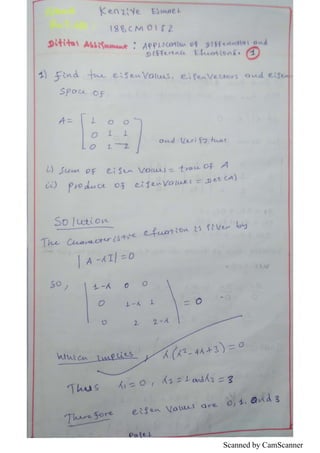 Kenziye Esmael
188CM0152
Digital Assignment : Application of Differential and
Difference Equations. 1
1) Find the eigen values, eigen vectors and eigen
space of.
A= [ 1 0 0
0 1 1
0 1 2 ] and verify that
i) sum of eigen values = trace of A
ii) product of eigen values = Det(A)
Solution
The characteristic equation is given by
|A-λI|=0
So, | 1-λ 0 0
0 1-λ 1 = 0
0 2 2-λ |
which implies, λ(λ²-4λ+3)=0
Thus λ₁=0, λ₂=1 and λ₃=3
Therefore eigen values are 0, 1 and 3
Scanned by CamScanner